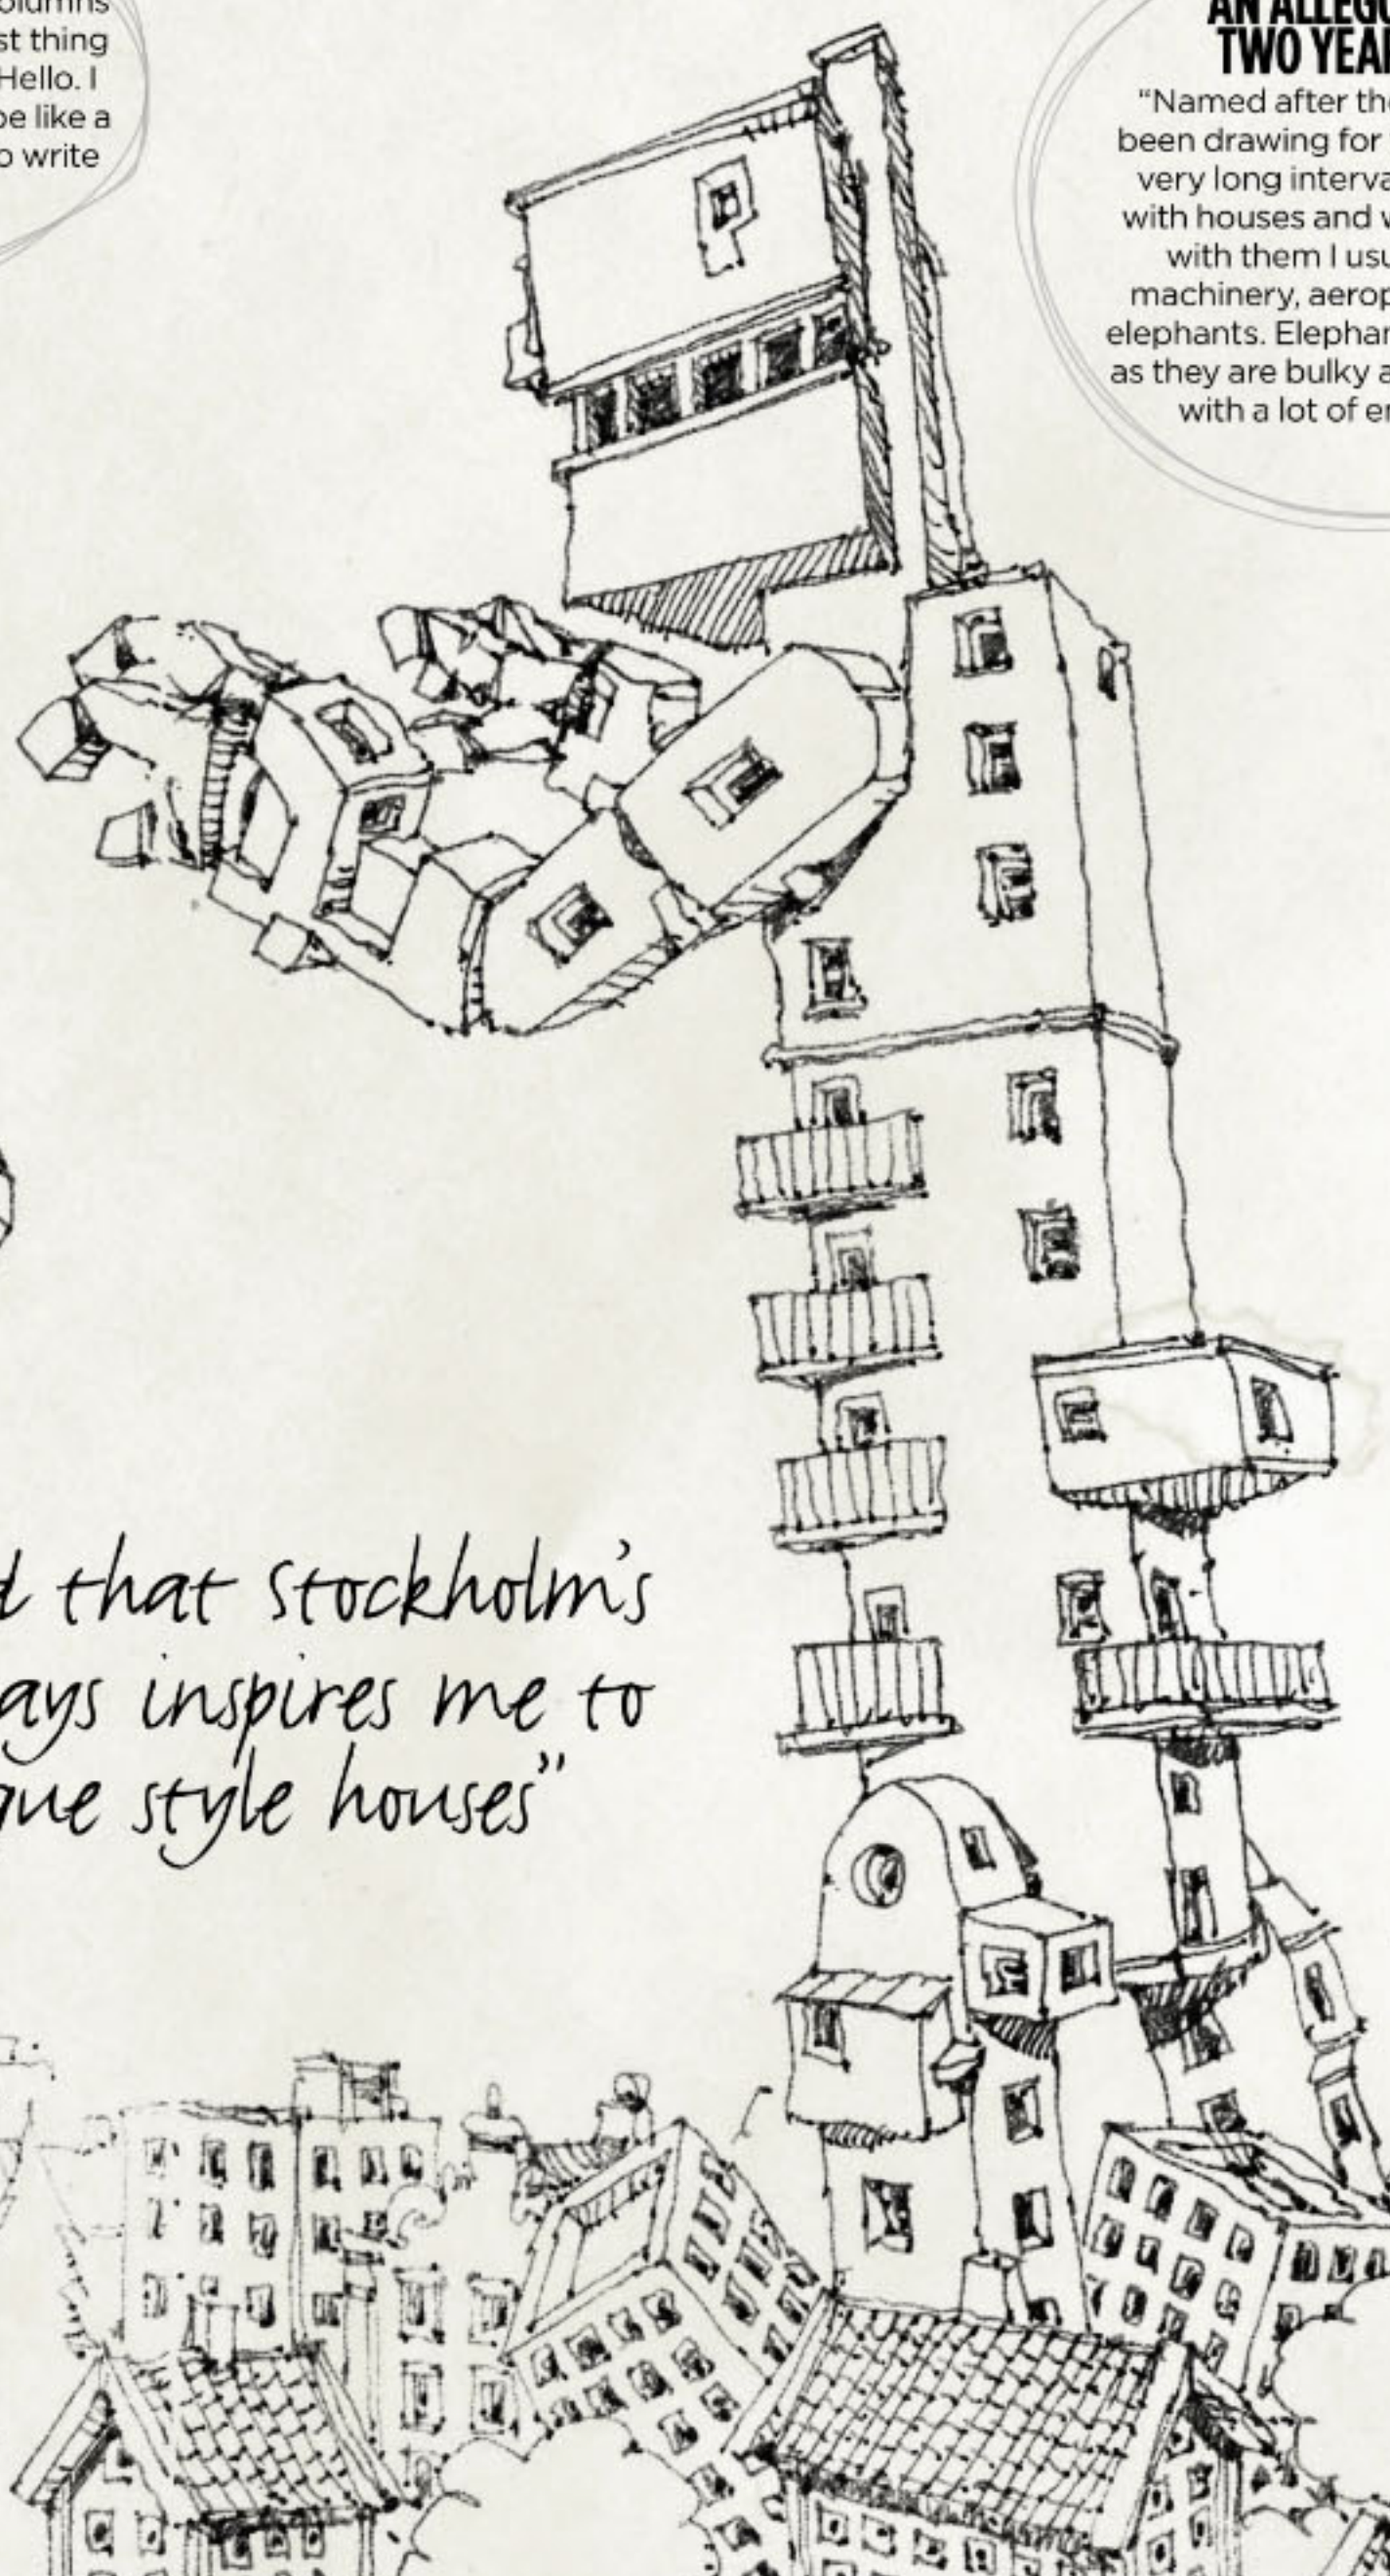 st thing
Hello. I
be like a
o write
TWO YEA
“Named after the
been drawing for
very long interva
with houses and
with them I usu
machinery, aerop
elephants. Elephan
as they are bulky a
with a lot of e
d that Stockholm’s
ays inspires me to
que style houses”